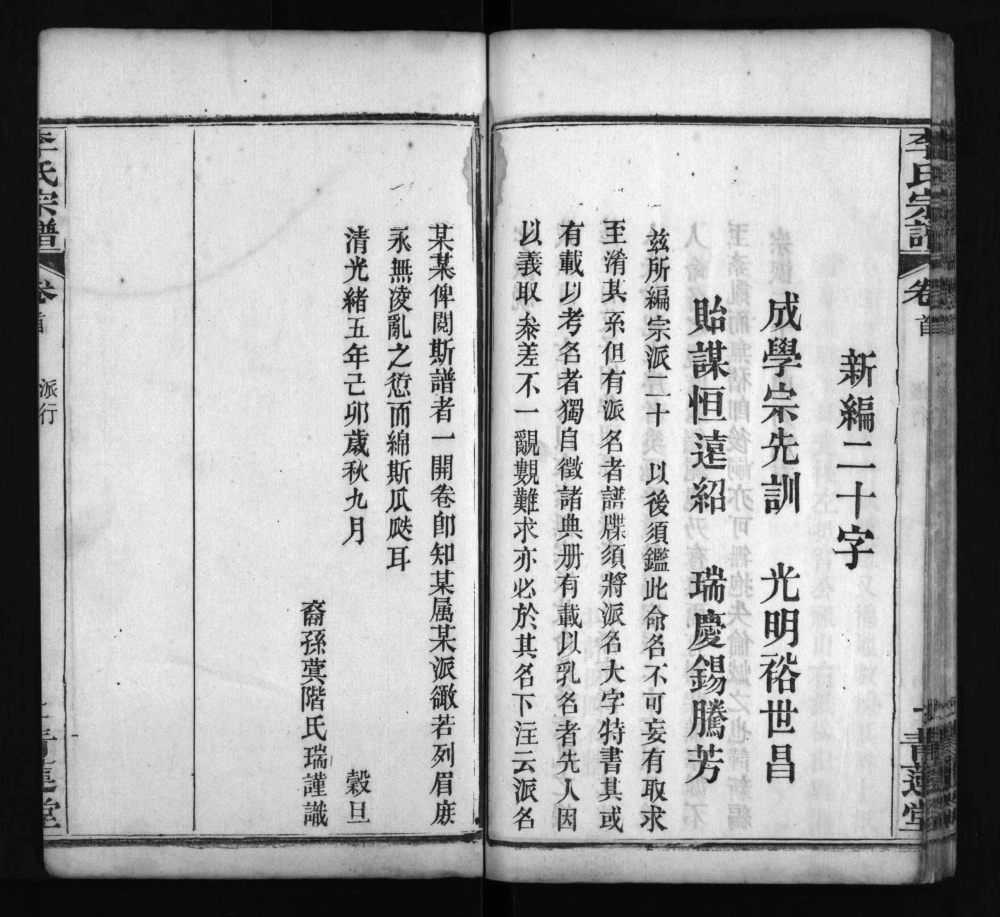 新編二十字
成學宗先訓 光明裕世昌
貽謀恒遠紹 瑞慶錫騰芳
茲所編宗派二十 以後須鑑此命名不可妄有取求
至淆其系但有派名者譜牒須將派名大字特書其或
有載以考名者獨自徵諸典册有載以乳名者先人因
以義取叅差不一覼覶難求亦必於其名下注云派名
某某俾閱斯譜者一開卷卽知某属某派儼若列眉庶
永無淩亂之愆而綿斯瓜瓞耳
清光緒五年己卯歲秋九月 穀旦
裔孫蓂階氏瑞謹識
李氏宗譜
卷首
派行
青蓮堂
李氏宗譜
卷首
派行
青蓮堂